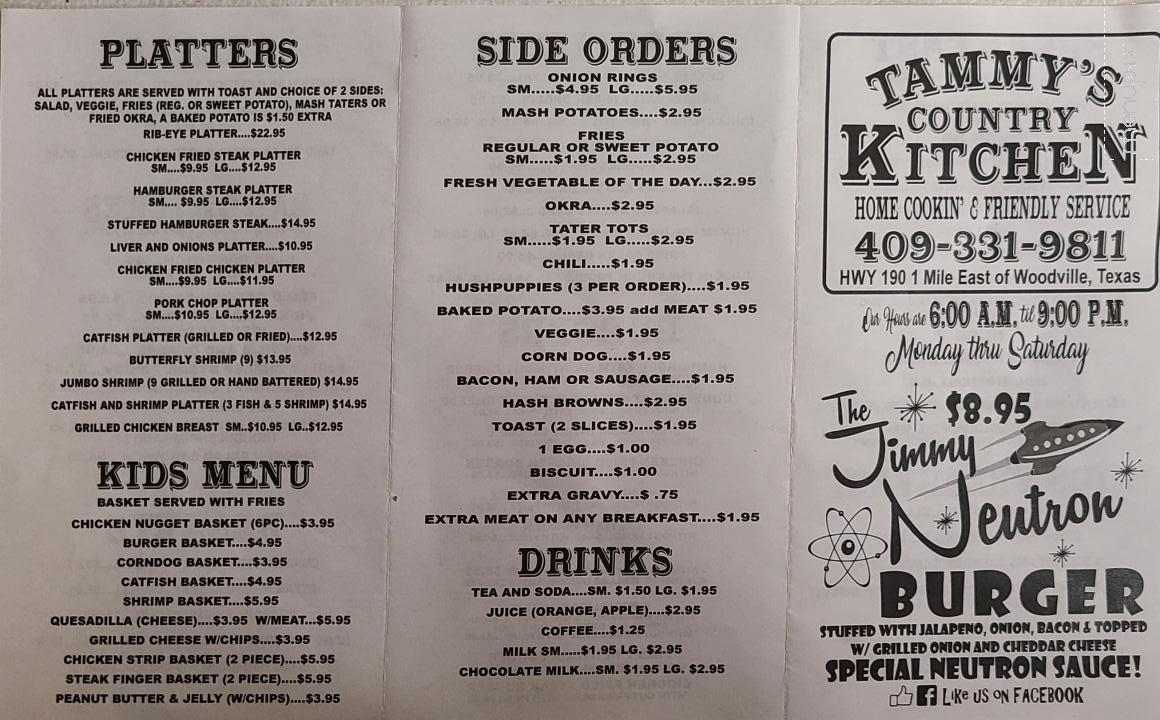 PLATTERS
ALL PLATTERS ARE SERVED WITH TOAST AND CHOICE OF 2 SIDES:
SALAD, VEGGIE, FRIES (REG. OR SWEET POTATO), MASH TATERS OR
FRIED OKRA, A BAKED POTATO IS $1.50 EXTRA
RIB-EYE PLATTER....$22.95
CHICKEN FRIED STEAK PLATTER
SM....$9.95 LG....$12.95
HAMBURGER STEAK PLATTER
SM.... $9.95 LG....$12.95
STUFFED HAMBURGER STEAK....$14.95
LIVER AND ONIONS PLATTER....$10.95
CHICKEN FRIED CHICKEN PLATTER
SM....$9.95 LG....$11.95
PORK CHOP PLATTER
SM....$10.95 LG....$12.95
CATFISH PLATTER (GRILLED OR FRIED)....$12.95
BUTTERFLY SHRIMP (9) $13.95
JUMBO SHRIMP (9 GRILLED OR HAND BATTERED) $14.95
CATFISH AND SHRIMP PLATTER (3 FISH & 5 SHRIMP) $14.95
GRILLED CHICKEN BREAST SM..$10.95 LG..$12.95
KIDS MENU
BASKET SERVED WITH FRIES
CHICKEN NUGGET BASKET (6PC)....$3.95
BURGER BASKET....$4.95
CORNDOG BASKET....$3.95
CATFISH BASKET....$4.95
SHRIMP BASKET....$5.95
QUESADILLA (CHEESE)....$3.95 W/MEAT...$5.95
GRILLED CHEESE W/CHIPS....$3.95
CHICKEN STRIP BASKET (2 PIECE)....$5.95
STEAK FINGER BASKET (2 PIECE)....$5.95
PEANUT BUTTER & JELLY (W/CHIPS)....$3.95
SIDE ORDERS
ONION RINGS
SM.....$4.95 LG.....$5.95
MASH POTATOES....$2.95
FRIES
REGULAR OR SWEET POTATO
SM.....$1.95 LG.....$2.95
FRESH VEGETABLE OF THE DAY...$2.95
OKRA....$2.95
TATER TOTS
SM.....$1.95 LG.....$2.95
CHILI.....$1.95
HUSHPUPPIES (3 PER ORDER)....$1.95
BAKED POTATO....$3.95 add MEAT $1.95
VEGGIE....$1.95
CORN DOG....$1.95
BACON, HAM OR SAUSAGE....$1.95
HASH BROWNS....$2.95
TOAST (2 SLICES)....$1.95
1 EGG....$1.00
BISCUIT....$1.00
EXTRA GRAVY....$ .75
EXTRA MEAT ON ANY BREAKFAST....$1.95
DRINKS
TEA AND SODA....SM. $1.50 LG. $1.95
JUICE (ORANGE, APPLE)....$2.95
COFFEE....$1.25
MILK SM.....$1.95 LG. $2.95
CHOCOLATE MILK....SM. $1.95 LG. $2.95
TAMMY'S
COUNTRY
KITCHEN
HOME COOKIN' & FRIENDLY SERVICE
409-331-9811
HWY 190 1 Mile East of Woodville, Texas
Our Hours are 6:00 A.M. til 9:00 P.M.
Monday thru Saturday
The $8.95
Jimmy
Neutron
BURGER
STUFFED WITH JALAPENO, ONION, BACON & TOPPED
W/ GRILLED ONION AND CHEDDAR CHEESE
SPECIAL NEUTRON SAUCE!
LIKE US ON FACEBOOK